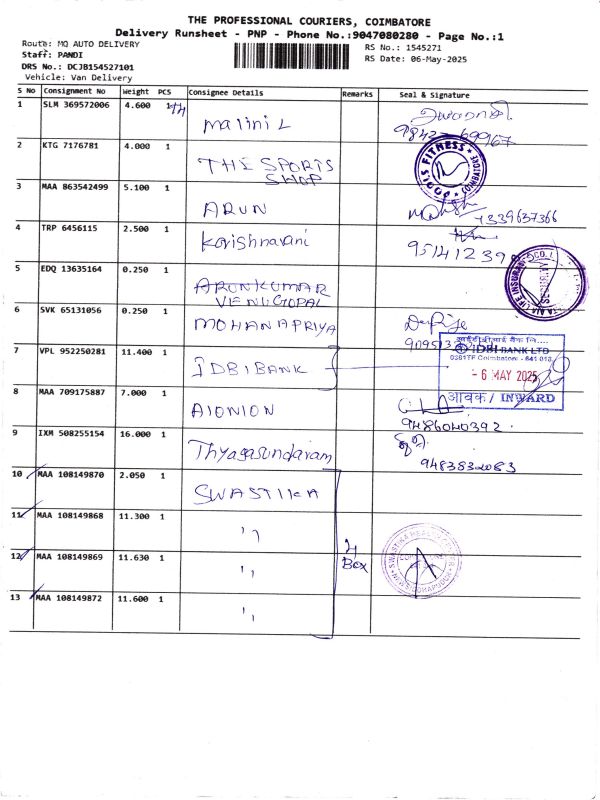 THE PROFESSIONAL COURIERS, COIMBATORE
Delivery Runsheet - PNP - Phone No.:9047080280 - Page No.:1
Route: MQ AUTO DELIVERY
RS No.: 1545271
Staff: PANDI
RS Date: 06-May-2025
DRS No.: DCJB154527101
Vehicle: Van Delivery
S No Consignment No Weight PCS Consignee Details Remarks Seal & Signature
1 SLM 369572006 4.600 Malini L
2 KTG 7176781 4.000 1 THE SPORTS SHOP
FITNESS COIMBATORE
3 MAA 863542499 5.100 1 ARUN 7339637366
4 TRP 6456115 2.500 1 Karishnaveni
5 EDQ 13635164 0.250 1 ARUNKUMAR VENUGOPAL
6 SVK 65131056 0.250 1 MOHANAPRIYA
7 VPL 952250281 11.400 1 IDBI BANK
IDBI BANK LTD
Coimbatore - 641 018
- 6 MAY 2025
आवक / INWARD
8 MAA 709175887 7.000 1 AIONION
9486040392
9 IXM 508255154 16.000 1 Thyagasundaram
9483832083
10 MAA 108149870 2.050 1 SWASTIKA
11 MAA 108149868 11.300 1 ''
12 MAA 108149869 11.630 1 '' 4 Box
13 MAA 108149872 11.600 1 ''